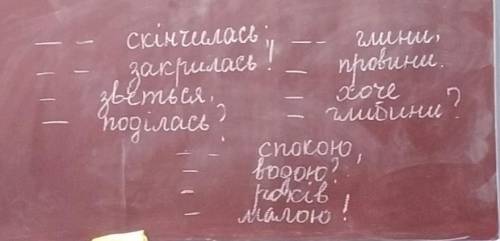 — — скінчилась,
— — закрилась!
— зветься,
— поділась?
— — глини,
— провини.
— хоче
— глибини?
— — спокою,
— водою?
— років
— малою!